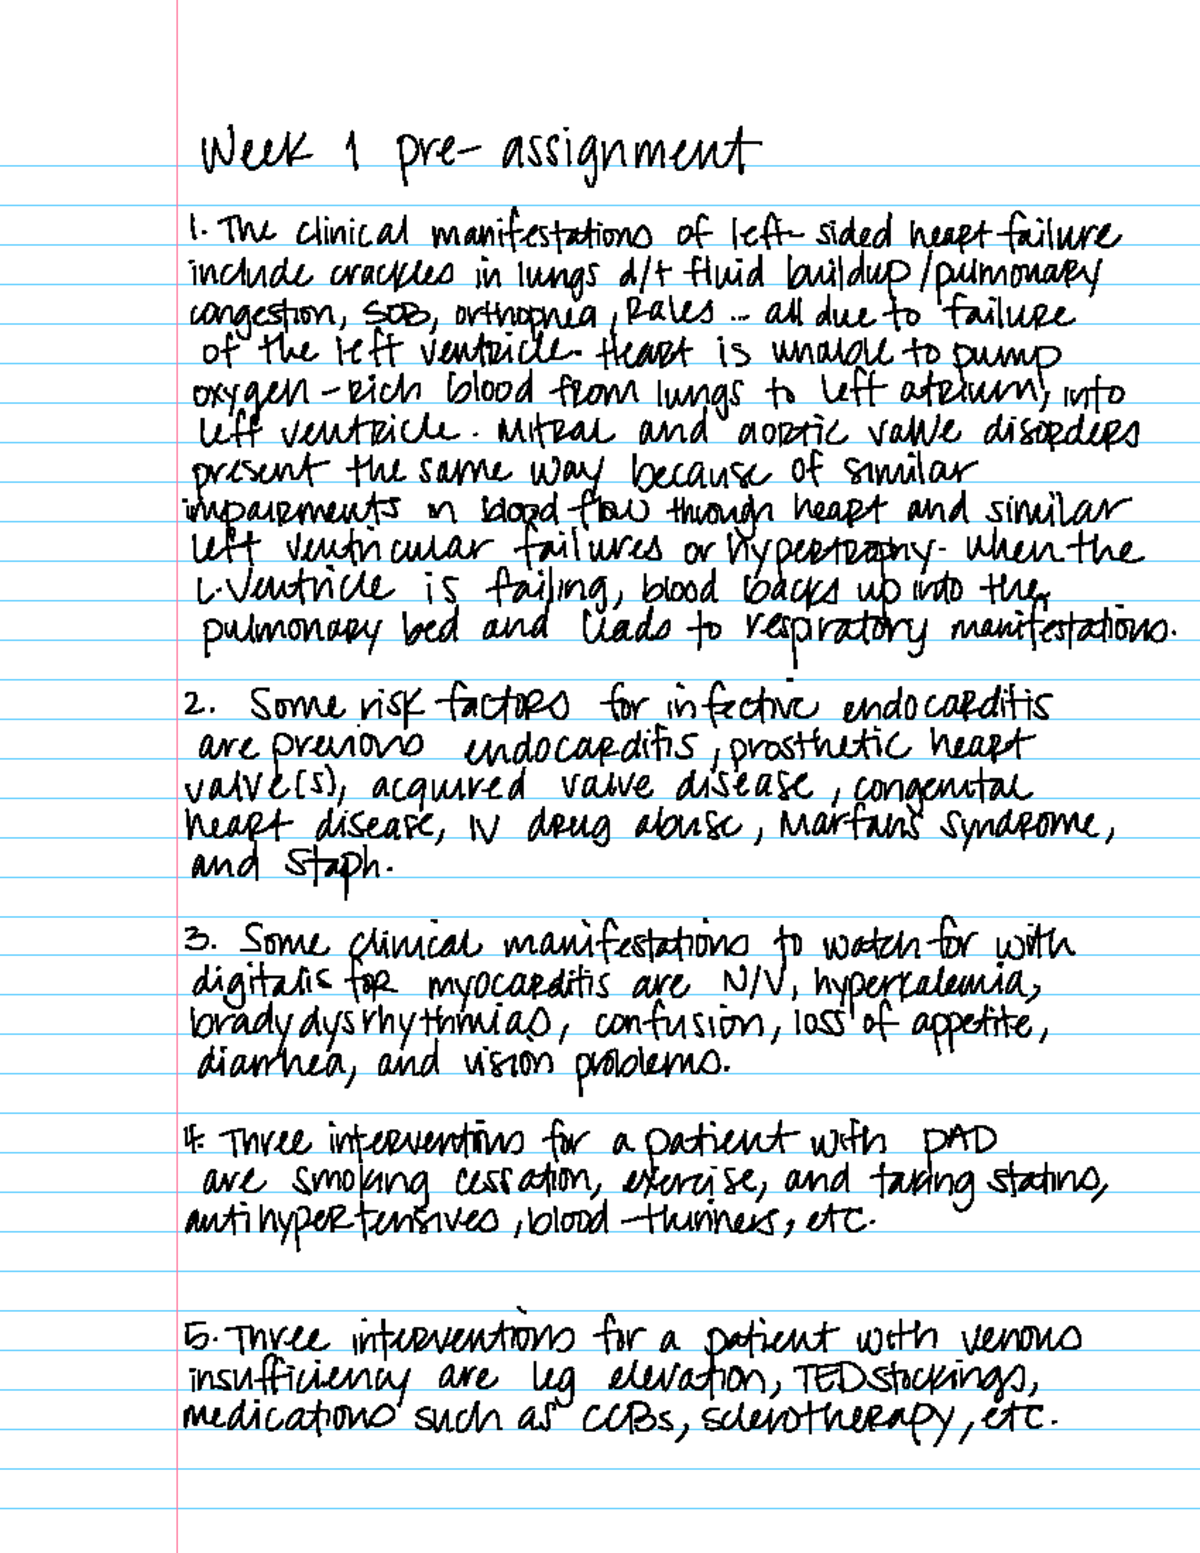 Week 1 pre-assignment
1. The clinical manifestations of left-sided heart failure
include crackles in lungs d/t fluid buildup/pulmonary
congestion, SOB, orthopnea, Rales... all due to failure
of the left ventricle. Heart is unable to pump
oxygen-rich blood from lungs to left atrium, into
left ventricle. Mitral and aortic valve disorders
present the same way because of similar
impairments in blood flow through heart and similar
left ventricular failures or hypertrophy. When the
L. Ventricle is failing, blood backs up into the
pulmonary bed and leads to respiratory manifestations.
2. Some risk factors for infective endocarditis
are previous endocarditis, prosthetic heart
valve(s), acquired valve disease, congenital
heart disease, IV drug abuse, Marfans Syndrome,
and Staph.
3. Some clinical manifestations to watch for with
digitalis for myocarditis are N/V, hyperkalemia,
bradydysrhythmias, confusion, loss of appetite,
diarrhea, and vision problems.
4. Three interventions for a patient with PAD
are smoking cessation, exercise, and taking statins,
antihypertensives, blood-thinners, etc.
5. Three interventions for a patient with venous
insufficiency are leg elevation, TED stockings,
medications such as CCBs, sclerotherapy, etc.